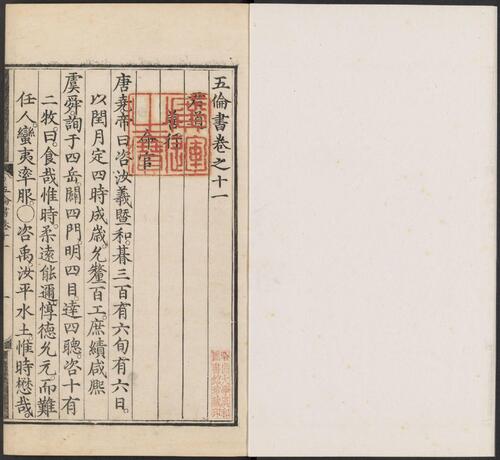 五倫書卷之十一
君道
善任
命官
唐堯帝曰咨汝羲暨和朞三百有六旬有六日
以閏月定四時成歲允釐百工庶績咸熙
虞舜詢于四岳闢四門明四目達四聰咨十有
二牧曰食哉惟時柔遠能邇惇德允元而難
任人蠻夷率服○咨禹汝平水土惟時懋哉